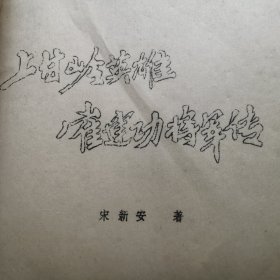 上甘岭英雄
崔建功将军传
宋新安 著